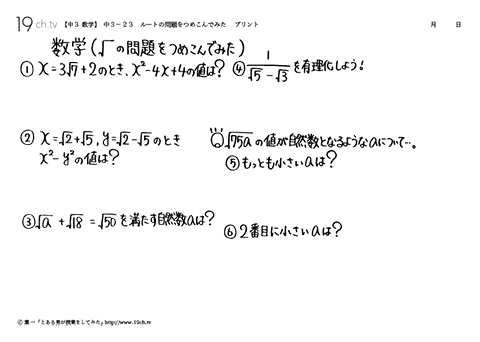 19 ch.tv 【中3 数学】 中3-23 ルートの問題をつめこんでみた プリント 月 日
数学(√の問題をつめこんでみた)
① x=3√7+2のとき、x²-4x+4の値は?
④ 1/(√5-√3) を有理化しよう!
② x=√2+√5, y=√2-√5のとき
x²-y²の値は?
Q √75a の値が自然数となるようなaについて…。
⑤ もっとも小さいaは?
③ √a+√18=√50を満たす自然数aは?
⑥ 2番目に小さいaは?
© 葉一「とある男が授業をしてみた」http://www.19ch.tv